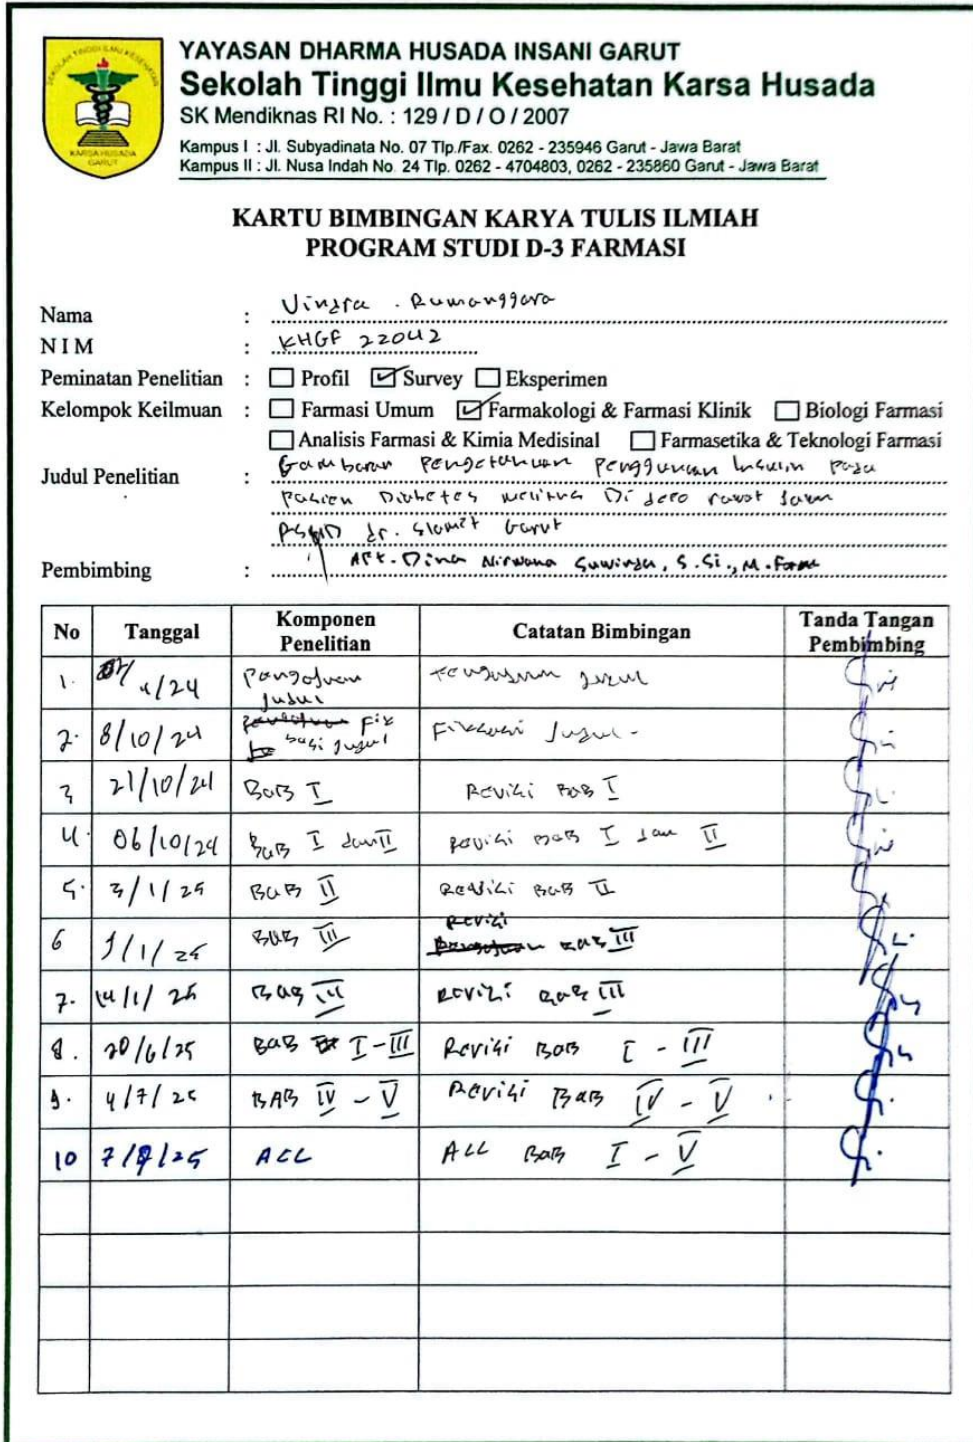 YAYASAN DHARMA HUSADA INSANI GARUT
Sekolah Tinggi Ilmu Kesehatan Karsa Husada
SK Mendiknas RI No. : 129 / D / O / 2007
Kampus I : Jl. Subyadinata No. 07 Tlp./Fax. 0262 - 235946 Garut - Jawa Barat
Kampus II : Jl. Nusa Indah No. 24 Tlp. 0262 - 4704803, 0262 - 235860 Garut - Jawa Barat
KARSA HUSADA
GARUT
KARTU BIMBINGAN KARYA TULIS ILMIAH
PROGRAM STUDI D-3 FARMASI
Nama :
NIM : KHGF 22042
Peminatan Penelitian : Profil Survey Eksperimen
Kelompok Keilmuan : Farmasi Umum Farmakologi & Farmasi Klinik Biologi Farmasi
Analisis Farmasi & Kimia Medisinal Farmasetika & Teknologi Farmasi
Judul Penelitian : Gambaran Pengetahuan Penggunaan Insulin Pada
Pasien Diabetes Melitus Di rawat
dr. Slamet Garut
Pembimbing : Apt. Nirwana S.Si., M.Farm
No Tanggal Komponen Penelitian Catatan Bimbingan Tanda Tangan Pembimbing
1. /24 Judul
2. 8/10/24 Judul Judul
3 21/10/24 BAB I Revisi BAB I
4. 06/10/24 BAB I dan II Revisi BAB I dan II
5. 3/1/25 BAB II Revisi BAB II
6 /1/25 BAB III Revisi BAB III
7. 14/1/25 BAB III Revisi BAB III
8. 20/6/25 BAB I - III Revisi BAB I - III
9. 4/7/25 BAB IV - V Revisi BAB IV - V
10 7/ /25 ACC ACC BAB I - V